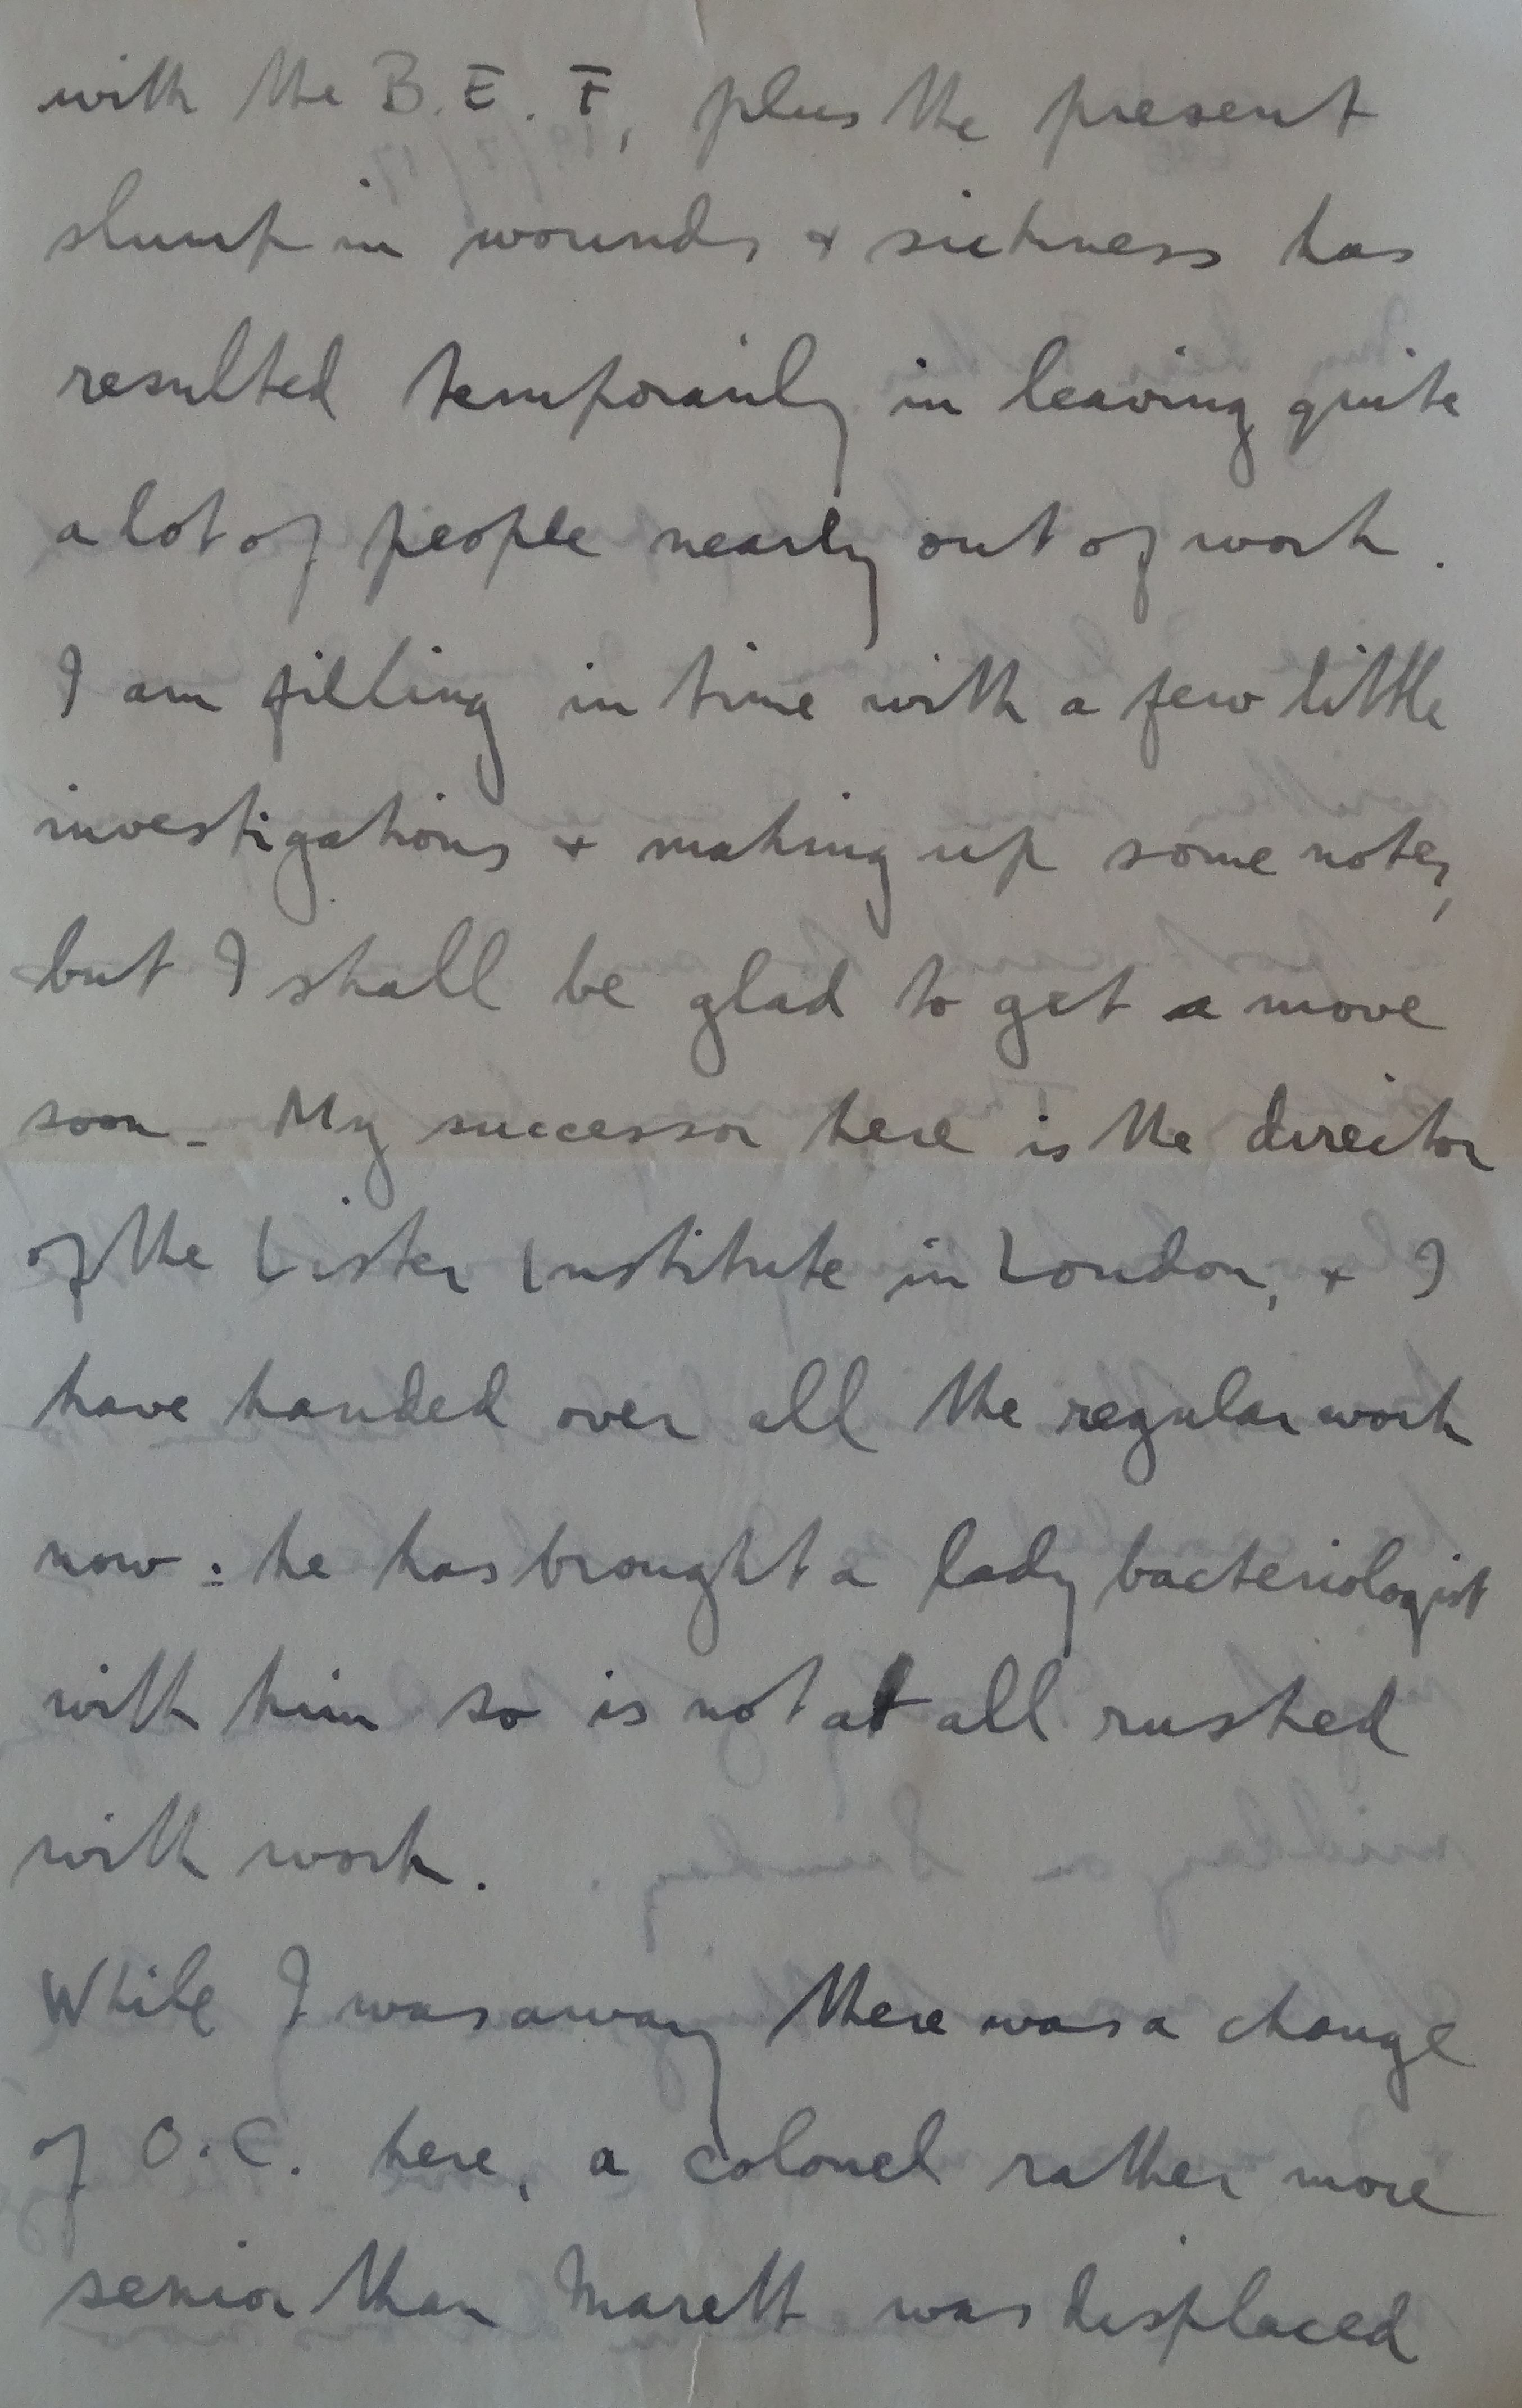 with the B.E.F, plus the present
slump in wounds + sickness has
resulted temporarily in leaving quite
a lot of people nearly out of work.
I am filling in time with a few little
investigations + making up some notes,
but I shall be glad to get a move
soon - My successor here is the director
of the Lister Institute in London, + I
have handed over all the regular work
now : he has brought a lady bacteriologist
with him so is not at all rushed
with work.
While I was away there was a change
of O.C. here, a colonel rather more
senior than Marett was displaced